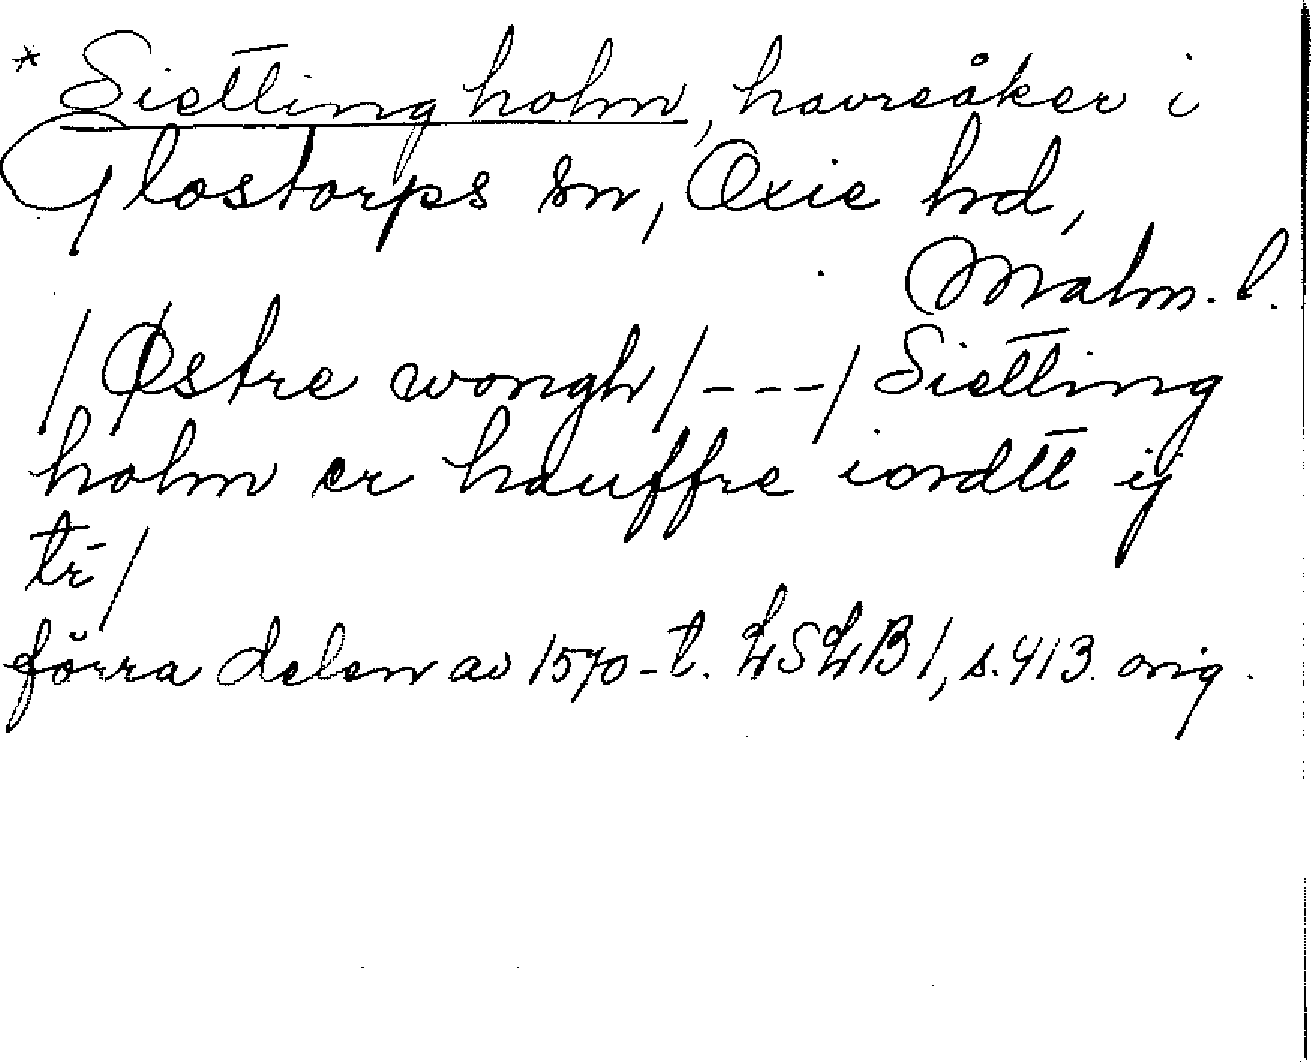 * Sietting holm, havreåker i
Glostorps sn, Oxie hd,
Malm. l.
/ Østre wongh / - - - / Sietting
holm er hauffre iordtt ij
tr̄ /
förra delen av 1570-t. LSLB 1, s. 413. orig.